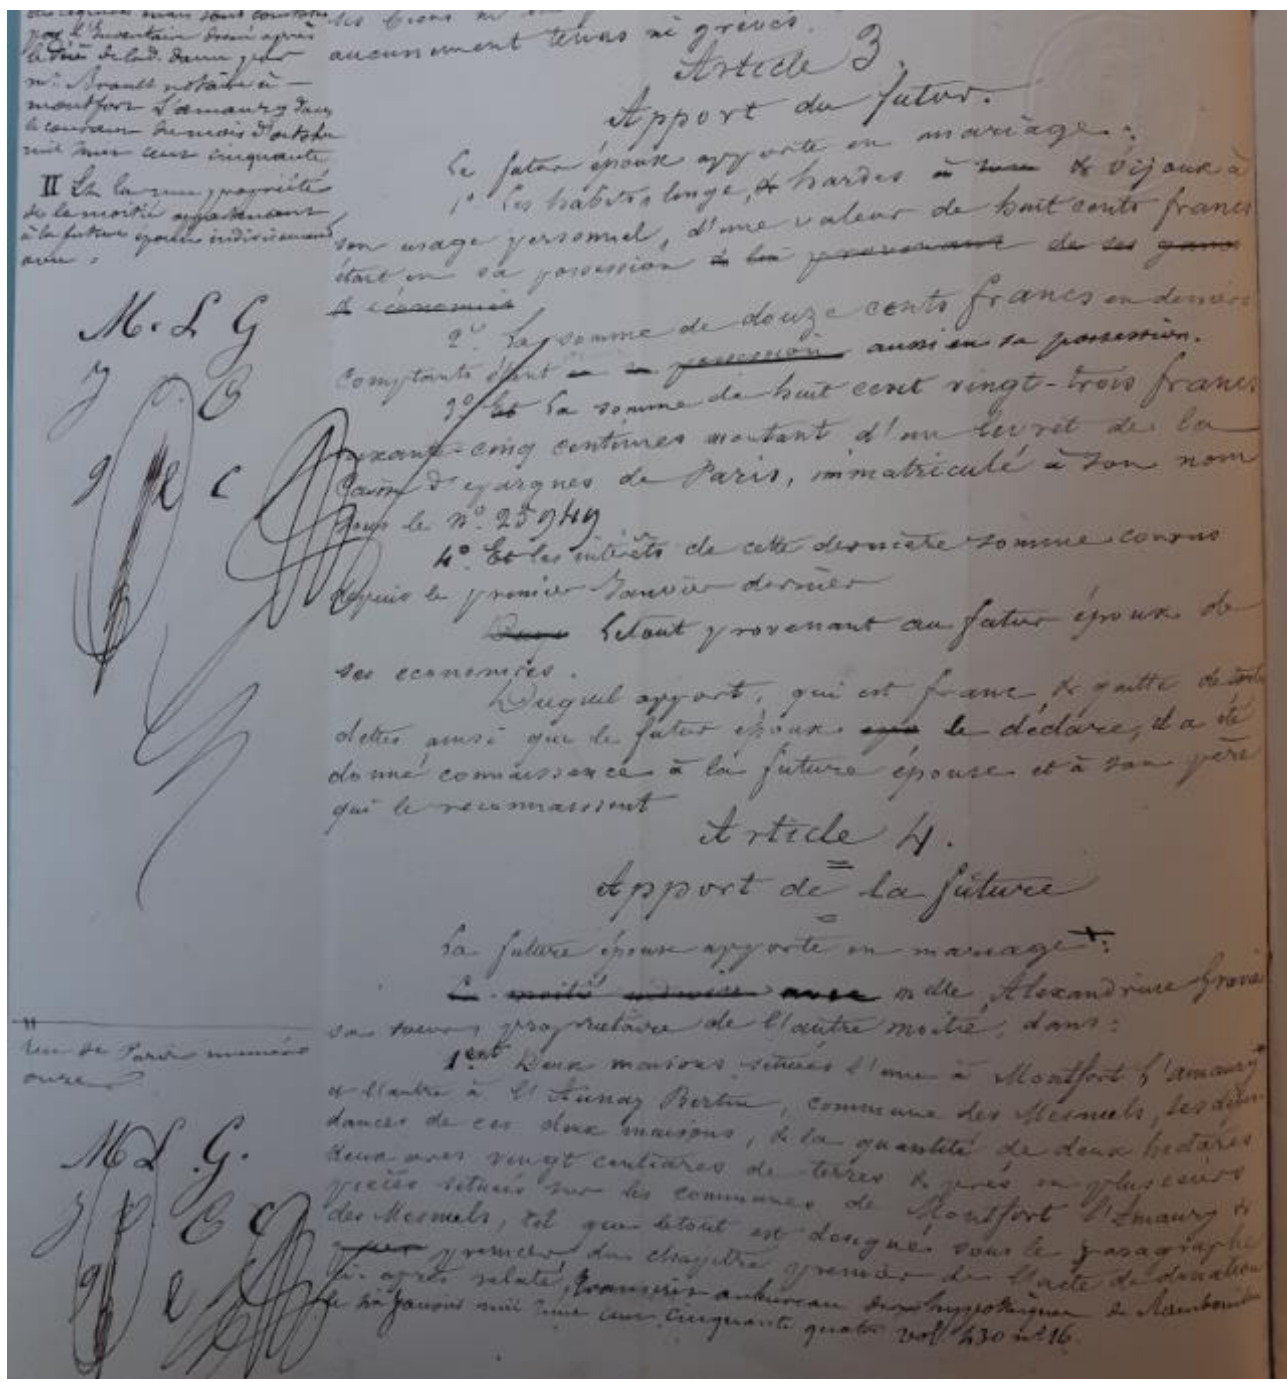 par l'Inventaire dressé après
le décès de lad. dame par
Me Brault notaire à
montfort L'amaury dans
le courant du mois d'octobre
mil huit cent cinquante
II Et la nue propriété
de la moitié appartenant
à la future épouse indivisément
avec :
M. L G
J C
g l c
rue de Paris numéro
onze
M L . G.
J C C
g l
ses biens ne
aucunement tenus ni grévés.
Article 3.
Apport du futur.
Le futur époux apporte en mariage :
1º Les habits linge, & hardes à & bijoux à
son usage personnel, d'une valeur de huit cents francs
étant en sa possession & lui provenant de ses gains
& économies
2º La somme de douze cents francs en deniers
comptants étant en sa possession aussi en sa possession.
3º Et la somme de huit cent vingt-trois francs
soixante-cinq centimes montant d'un livret de la
Caisse d'epargnes de Paris, immatriculé à son nom
sous le Nº 25949
4º Et les intérêts de cette dernière somme courus
depuis le premier Janvier dernier
Le tout provenant au futur époux de
ses economies.
Duquel apport, qui est franc & quitte de toutes
dettes ainsi que le futur époux le déclare, il a été
donné connaissance à la future épouse et à son père
qui le reconnaissent
Article 4.
Apport de la future
La future épouse apporte en mariage :
La moitié indivise avec mdlle Alexandrine
sa soeur propriétaire de l'autre moitié, dans :
1ent Deux maisons situées l'une à Montfort l'amaury
& l'autre à l'Aunay Bertin, commune des Mesnuls, les dépen
dances de ces deux maisons, & la quantité de deux hectares
deux ares vingt centiares de terres & prés en plusieurs
pièces situées sur les communes de Montfort l'Amaury &
des Mesnuls, tel que letout est désigné sous le paragraphe
premier du chapitre premier de l'acte de donation
ci-après relaté, transcrit au bureau des hypothèques de Rambouillet
le six Janvier mil huit cent cinquante quatre vol 430 nº 16.